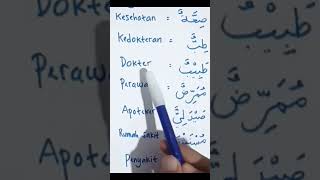 Kesehatan = صِحَّةٌ
Kedokteran = طِبٌّ
Dokter : طَبِيْبٌ
Perawa : مُمَرِّضٌ
Apoteker : صَيْدَلِيٌّ
Rumah Sakit :
Penyakit